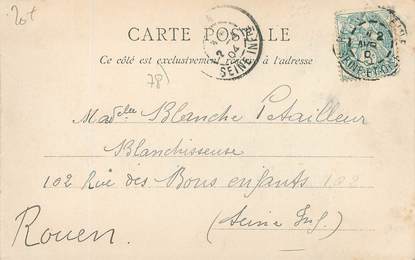 20+
CARTE POSTALE
Ce côté est exclusivement réservé à l'adresse
2
04
SEINE INFRE
78)
Madelle Blanche Petailleur
Blanchisseuse
102 Rue des Bons enfants 102
(Seine Inf.)
Rouen.